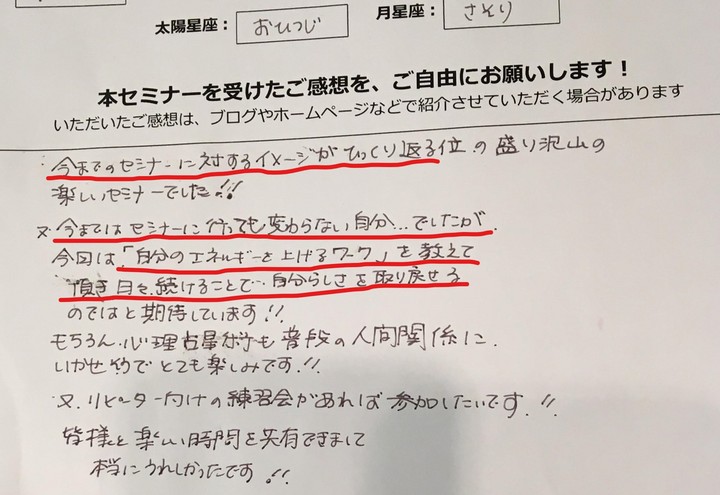 太陽星座： おひつじ 月星座： さそり
本セミナーを受けたご感想を、ご自由にお願いします！
いただいたご感想は、ブログやホームページなどで紹介させていただく場合があります
今までのセミナーに対するイメージがひっくり返る位の盛り沢山の
楽しいセミナーでした!!
又、今まではセミナーに行っても変わらない自分…でしたが
今回は「自分のエネルギーを上げるワーク」を教えて
頂き日々、続けることで…自分らしさを取り戻せる
のではと期待しています!!
もちろん、心理占星術も普段の人間関係に、
いかせそうでとても楽しみです!!
又、リピーター向けの練習会があれば参加したいです!!
皆様と楽しい時間を共有できまして
本当にうれしかったです!!